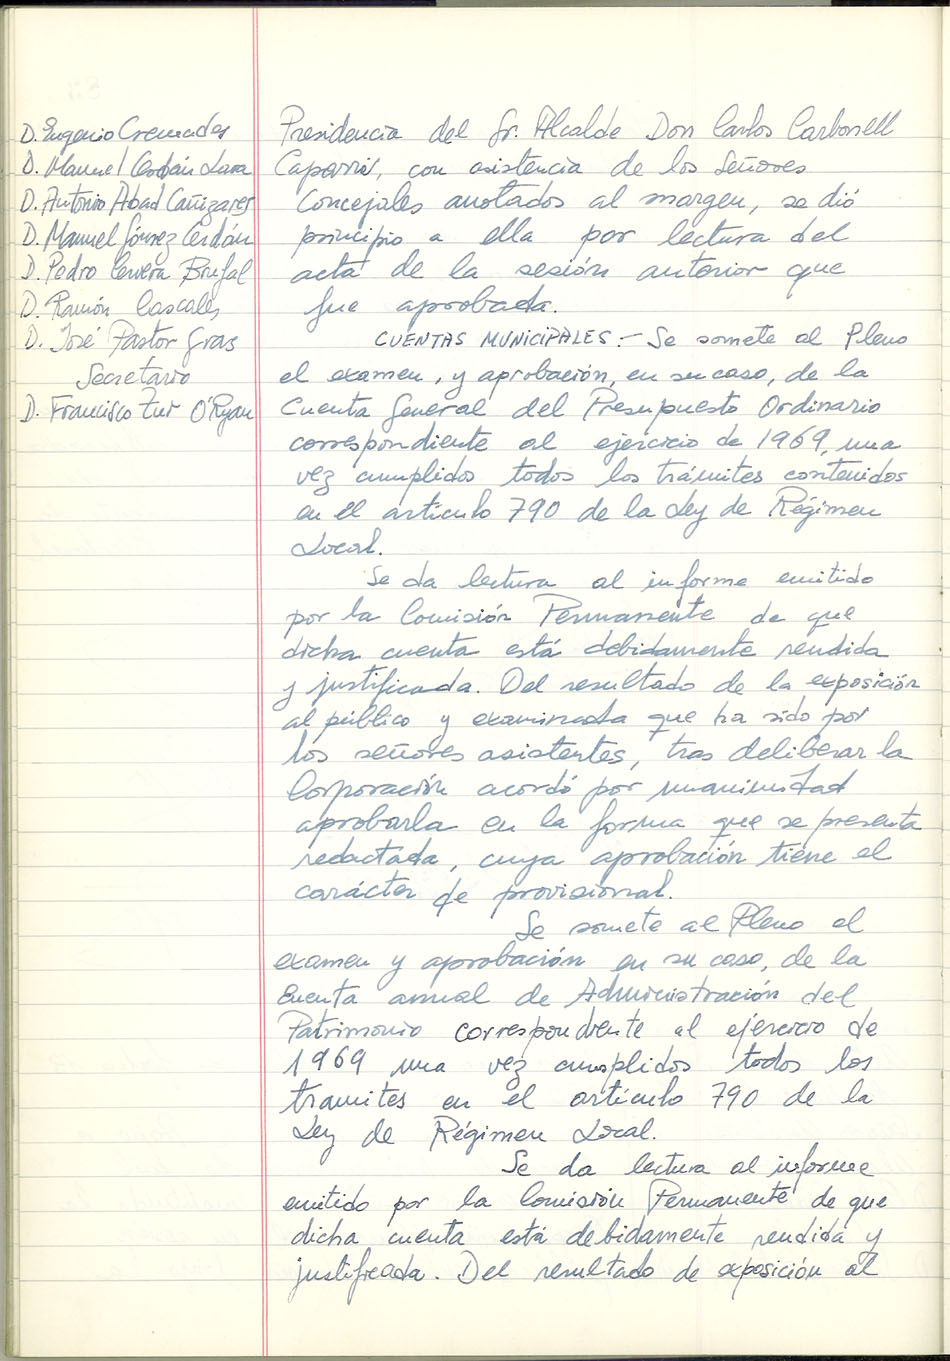 D. Eugenio Cremades
D. Manuel Cerdán Lara
D. Antonio Abad Cañizares
D. Manuel Gómez Cerdán
D. Pedro Cervera Brufal
D. Ramón Cascales
D. José Pastor Gras
Secretario
D. Francisco Tur O'Ryan
Presidencia del Sr. Alcalde Don Carlos Carbonell
Caparrós, con asistencia de los Señores
Concejales anotados al margen, se dió
principio a ella por lectura del
acta de la sesión anterior que
fue aprobada.
CUENTAS MUNICIPALES.- Se somete al Pleno
el examen, y aprobación, en su caso, de la
Cuenta General del Presupuesto Ordinario
correspondiente al ejercicio de 1969, una
vez cumplidos todos los trámites contenidos
en el artículo 790 de la Ley de Régimen
Local.
Se da lectura al informe emitido
por la Comisión Permanente de que
dicha cuenta está debidamente rendida
y justificada. Del resultado de la exposición
al público y examinada que ha sido por
los señores asistentes, tras deliberar la
Corporación acordó por unanimidad
aprobarla en la forma que se presenta
redactada, cuya aprobación tiene el
carácter de provisional.
Se somete al Pleno el
examen y aprobación en su caso, de la
Cuenta anual de Administración del
Patrimonio correspondiente al ejercicio de
1969 una vez cumplidos todos los
tramites en el artículo 790 de la
Ley de Régimen Local.
Se da lectura al informe
emitido por la Comisión Permanente de que
dicha cuenta está debidamente rendida y
justificada. Del resultado de exposición al